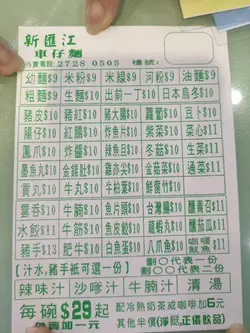 新匯江
車仔麵
外賣電話: 2728 0505 樓號:
幼麵$9 米粉$9 米線$9 河粉$9 油麵$9
粗麵$9 生麵$10 出前一丁$10 日本烏冬$10
豬皮$10 豬紅$10 豬大腸$10 蘿蔔$10 豆卜$10
腸仔$10 紅腸$10 炸魚片$10 紫菜$10 菜心$11
鳳爪$10 炸醬$10 炸魚皮$10 冬菇$10 生菜$11
墨魚丸$10 金錢肚$10 雞亦尖$10 金菇菜$10 通菜$11
貢丸$10 牛丸$10 牛柏葉$10 鮮腐竹$10
雲吞$10 牛腩$10 魚片頭$10 台灣腸$10 釀青召$11
水餃$11 牛筋$10 魚皮餃$10 龍蝦丸$10 釀茄瓜$11
豬手$13 肥牛$10 白魚蛋$10 八爪魚$10 咖喱魷魚$11
【汁水,豬手衹可選一份】 劃〇代表一份
劃〇〇代表二份
辣味汁 沙嗲汁 牛腩汁 清湯
每碗$29起 配冷熱奶茶或咖啡加6元
外賣加一元 其他半價